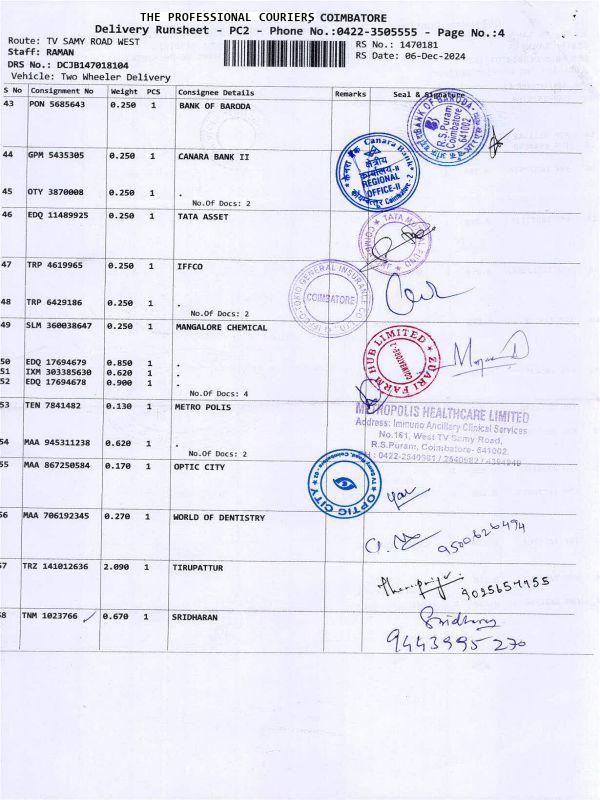 THE PROFESSIONAL COURIERS COIMBATORE
Delivery Runsheet - PC2 - Phone No.:0422-3505555 - Page No.:4
Route: TV SAMY ROAD WEST
Staff: RAMAN
RS No.: 1470181
DRS No.: DCJB147018104
RS Date: 06-Dec-2024
Vehicle: Two Wheeler Delivery
S No Consignment No Weight PCS Consignee Details Remarks Seal & Signature
43 PON 5685643 0.250 1 BANK OF BARODA
BANK OF BARODA
R.S.Puram
Coimbatore
641002
44 GPM 5435305 0.250 1 CANARA BANK II
केनरा बैंक Canara Bank
क्षेत्रीय
कार्यालय-II
REGIONAL
OFFICE-II
कोयम्बत्तूर Coimbatore - 2
45 OTY 3870008 0.250 1 .
No.Of Docs: 2
46 EDQ 11489925 0.250 1 TATA ASSET
47 TRP 4619965 0.250 1 IFFCO
IFFCO-TOKIO GENERAL INSURANCE CO. LTD.
COIMBATORE
48 TRP 6429186 0.250 1 .
No.Of Docs: 2
49 SLM 360038647 0.250 1 MANGALORE CHEMICAL
ZUARI FARM HUB LIMITED
50 EDQ 17694679 0.850 1 .
51 IXM 303385630 0.620 1 .
52 EDQ 17694678 0.900 1 .
No.Of Docs: 4
53 TEN 7841482 0.130 1 METRO POLIS
METROPOLIS HEALTHCARE LIMITED
Address: Immuno Ancillary Clinical Services
No.161, West TV Samy Road,
R.S.Puram, Coimbatore- 641002.
54 MAA 945311238 0.620 1 .
No.Of Docs: 2
55 MAA 867250584 0.170 1 OPTIC CITY
OPTIC CITY
56 MAA 706192345 0.270 1 WORLD OF DENTISTRY
9500626494
57 TRZ 141012636 2.090 1 TIRUPATTUR
9025657955
58 TNM 1023766 0.670 1 SRIDHARAN
Sridharan
9443995270